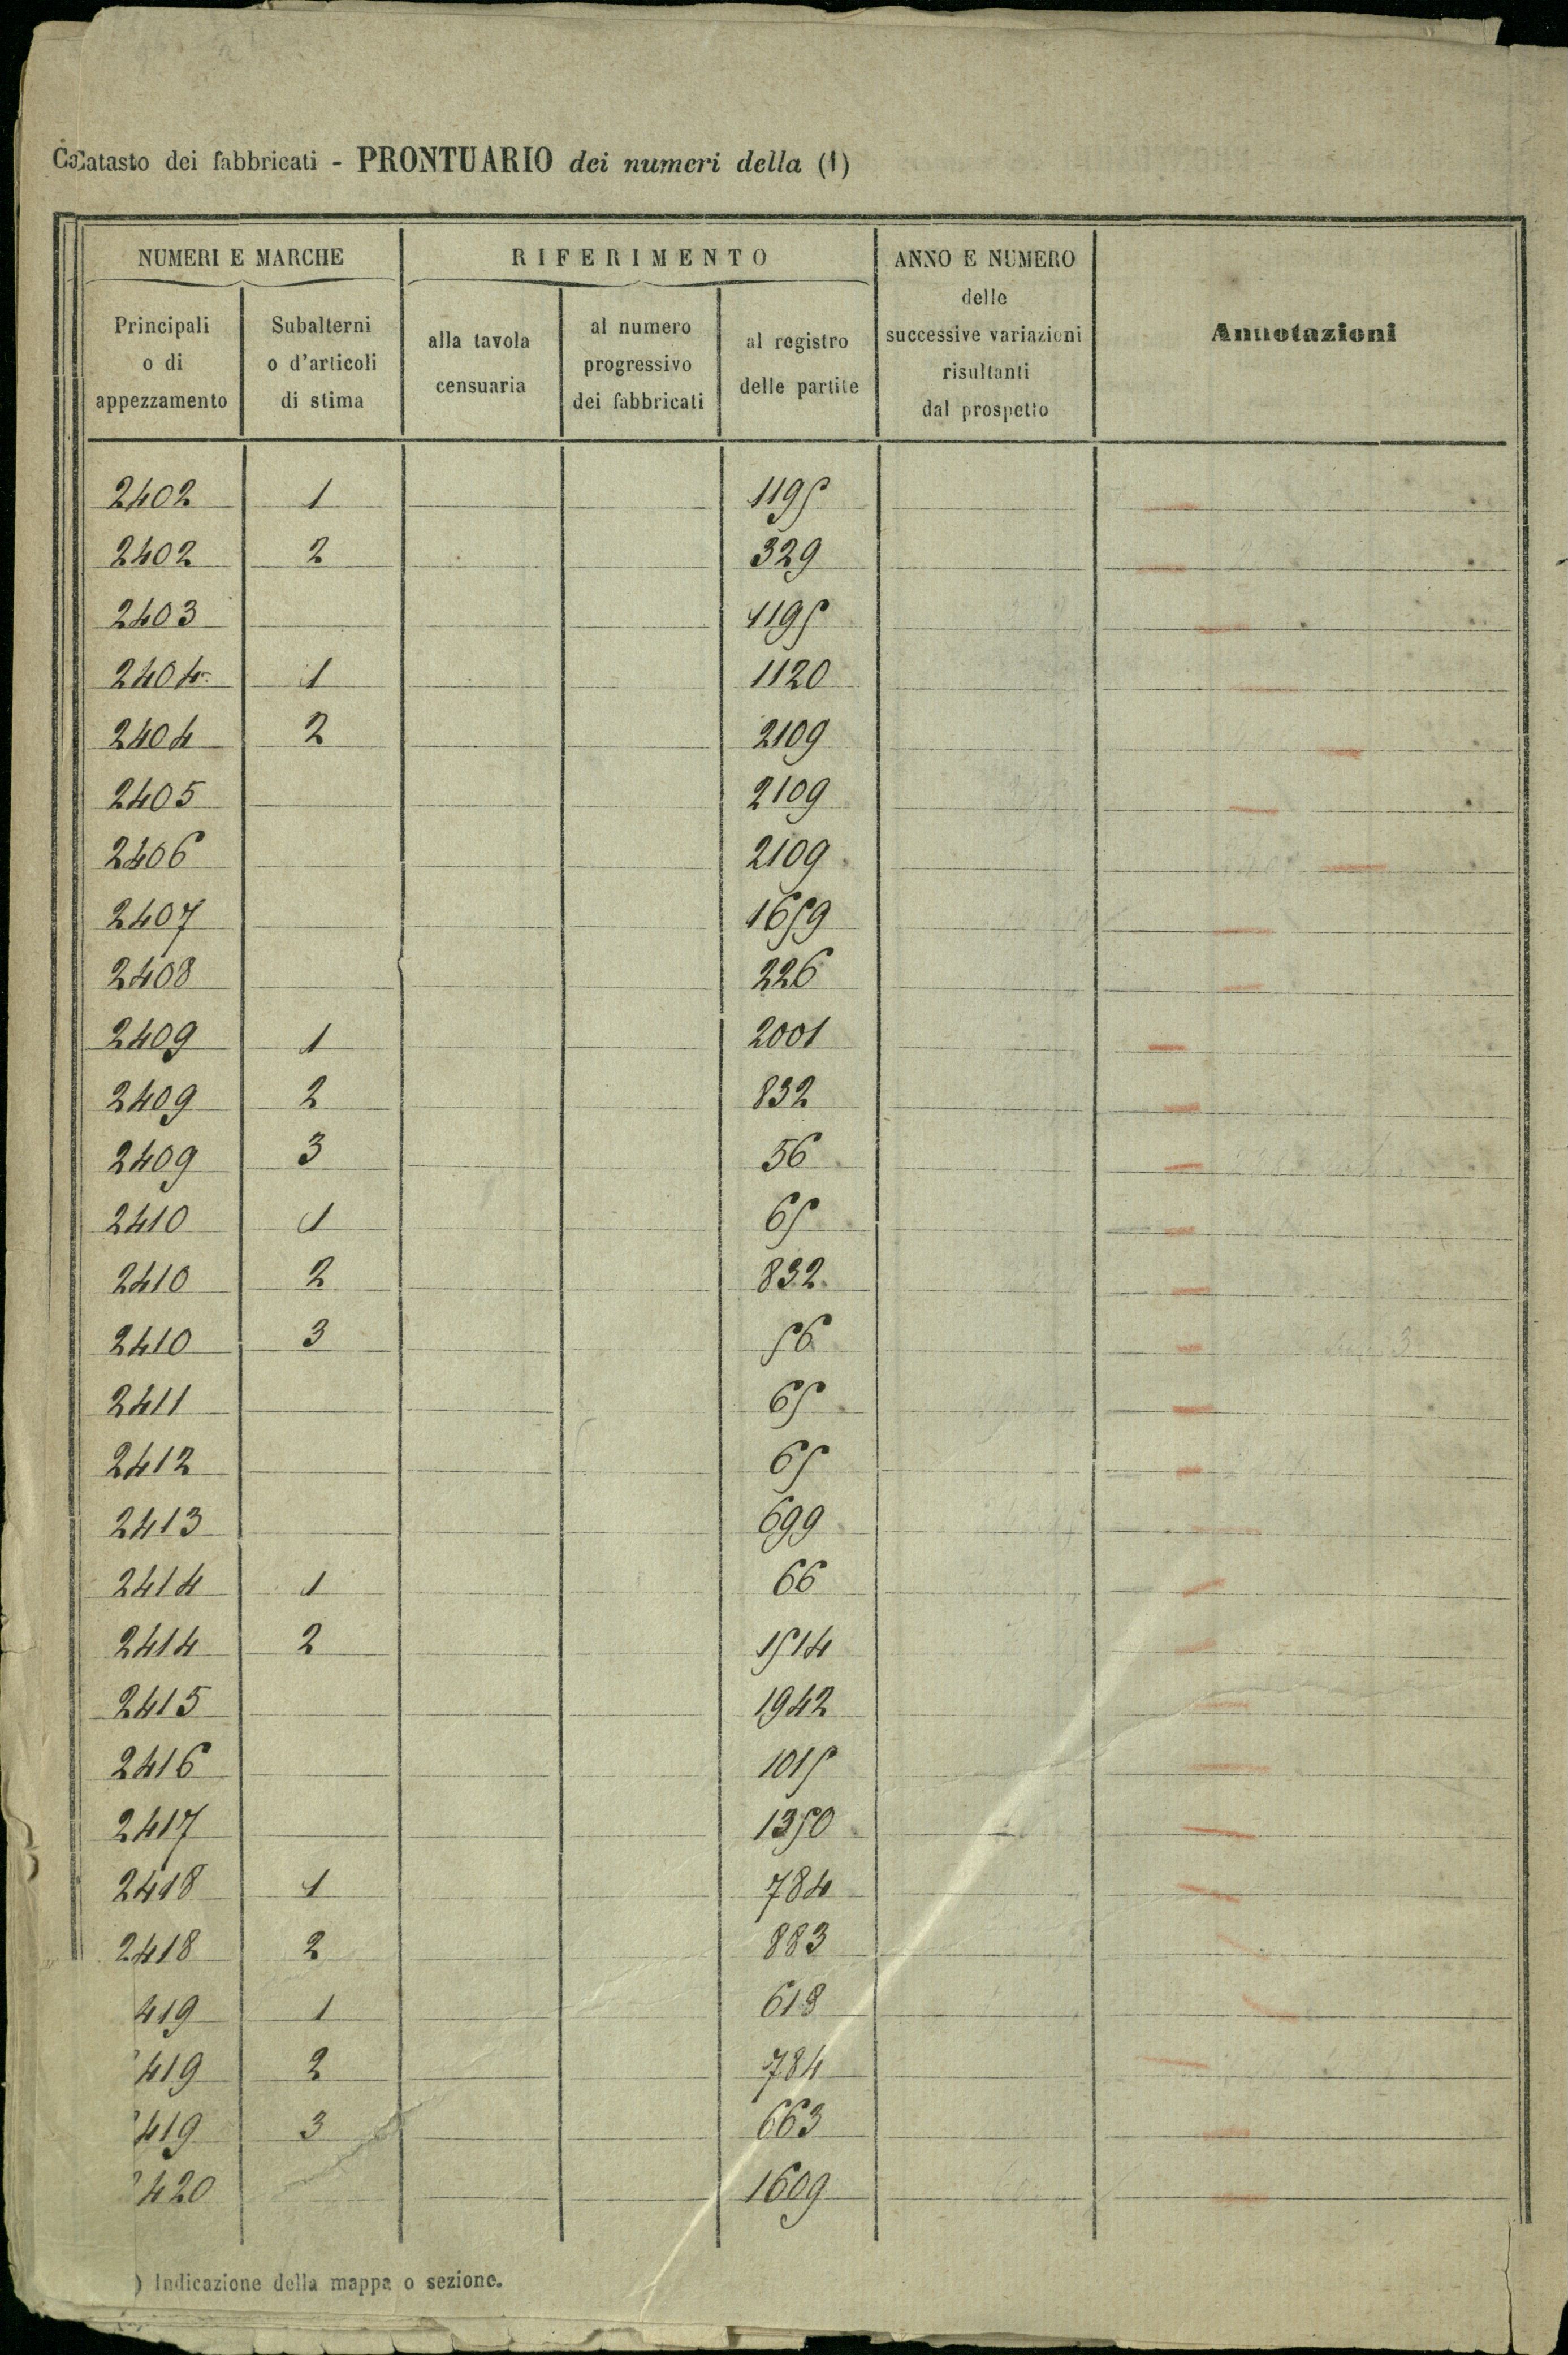 Catasto dei fabbricati - PRONTUARIO dei numeri della (1)
NUMERI E MARCHE RIFERIMENTO ANNO E NUMERO delle successive variazioni risultanti dal prospetto Annotazioni
Principali o di appezzamento Subalterni o d'articoli di stima alla tavola censuaria al numero progressivo dei fabbricati al registro delle partite
2402 1 1195
2402 2 329
2403 1195
2404 1 1120
2404 2 2109
2405 2109
2406 2109
2407 1659
2408 226
2409 1 2001
2409 2 832
2409 3 56
2410 1 65
2410 2 832
2410 3 56
2411 65
2412 65
2413 699
2414 1 66
2414 2 1514
2415 1942
2416 1015
2417 1350
2418 1 784
2418 2 883
419 1 618
419 2 784
419 3 663
420 1609
) Indicazione della mappa o sezione.